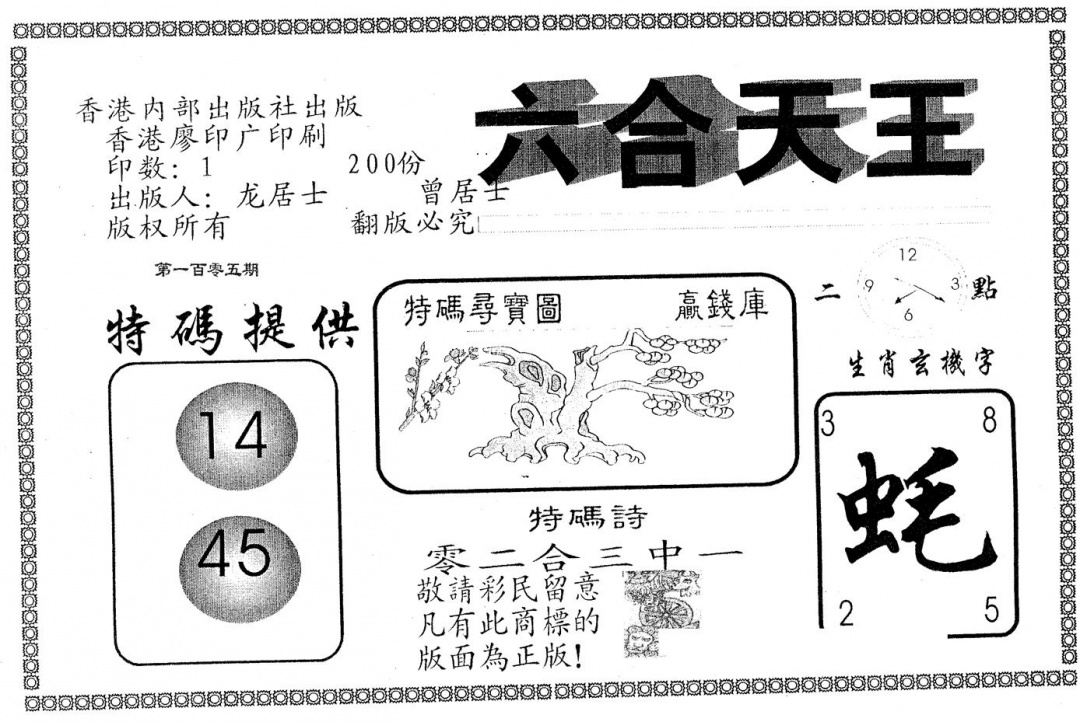 六合天王
香港内部出版社出版
香港廖印广印刷
印数：1 200份
出版人：龙居士 曾居士
版权所有 翻版必究
第一百零五期
特碼提供
14
45
特碼尋寶圖 贏錢庫
特碼詩
零二合三中一
敬請彩民留意
凡有此商標的
版面為正版！
二 點
12
9 3
6
生肖玄機字
3 8
蚝
2 5